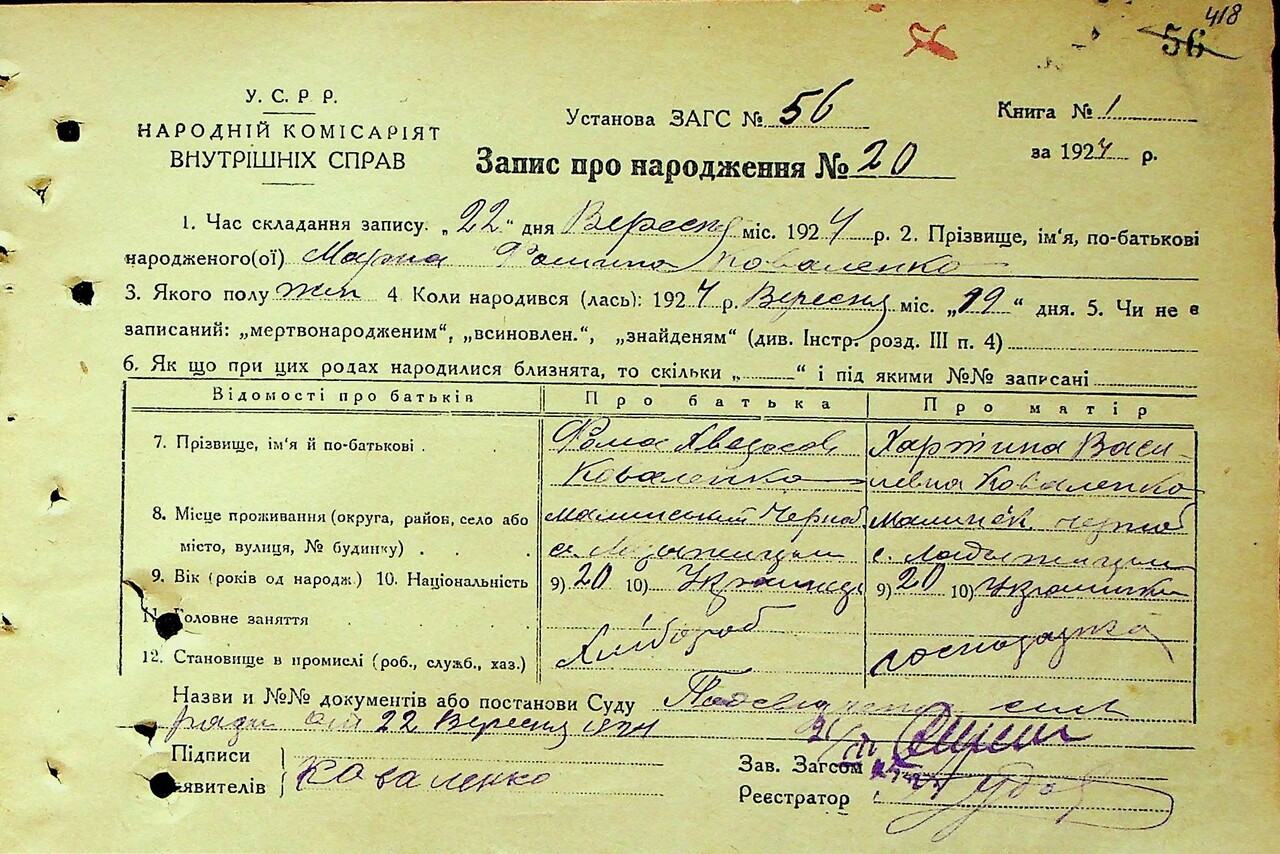 418
56 56
У. С. Р. Р.
НАРОДНІЙ КОМІСАРІЯТ
ВНУТРІШНІХ СПРАВ
Установа ЗАГС № 56
Книга № 1
за 1924 р.
Запис про народження № 20
1. Час складання запису. „22" дня Вересня міс. 1924 р. 2. Прізвище, ім'я, по-батькові
народженого(ої) Мария Фомина Коваленко
3. Якого полу жін 4 Коли народився (лась): 1924 р. Вересня міс. „19" дня. 5. Чи не є
записаний: „мертвонародженим", „всиновлен.", „знайденям" (див. Інстр. розд. III п. 4)
6. Як що при цих родах народилися близнята, то скільки „ " і під якими №№ записані
Відомості про батьків Про батька Про матір
7. Прізвище, ім'я й по-батькові . Фома Коваленко Василевна Коваленко
8. Місце проживання (округа, район, село або
місто, вулиця, № будинку) . . с. с.
9. Вік (років од народж.) 10. Національність 9) 20 10) Українець 9) 20 10) Українка
11. Головне заняття
Хлібороб господарка
12. Становище в промислі (роб., служб., хаз.)
Назви и №№ документів або постанови Суду Посвідчення сіль
ради від 22 Вересня 1924
Підписи
заявителів } Коваленко
Зав. Загсом
Реєстратор